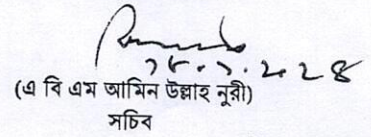 ২৮.১.২০২৪
(এ বি এম আমিন উল্লাহ নুরী)
সচিব